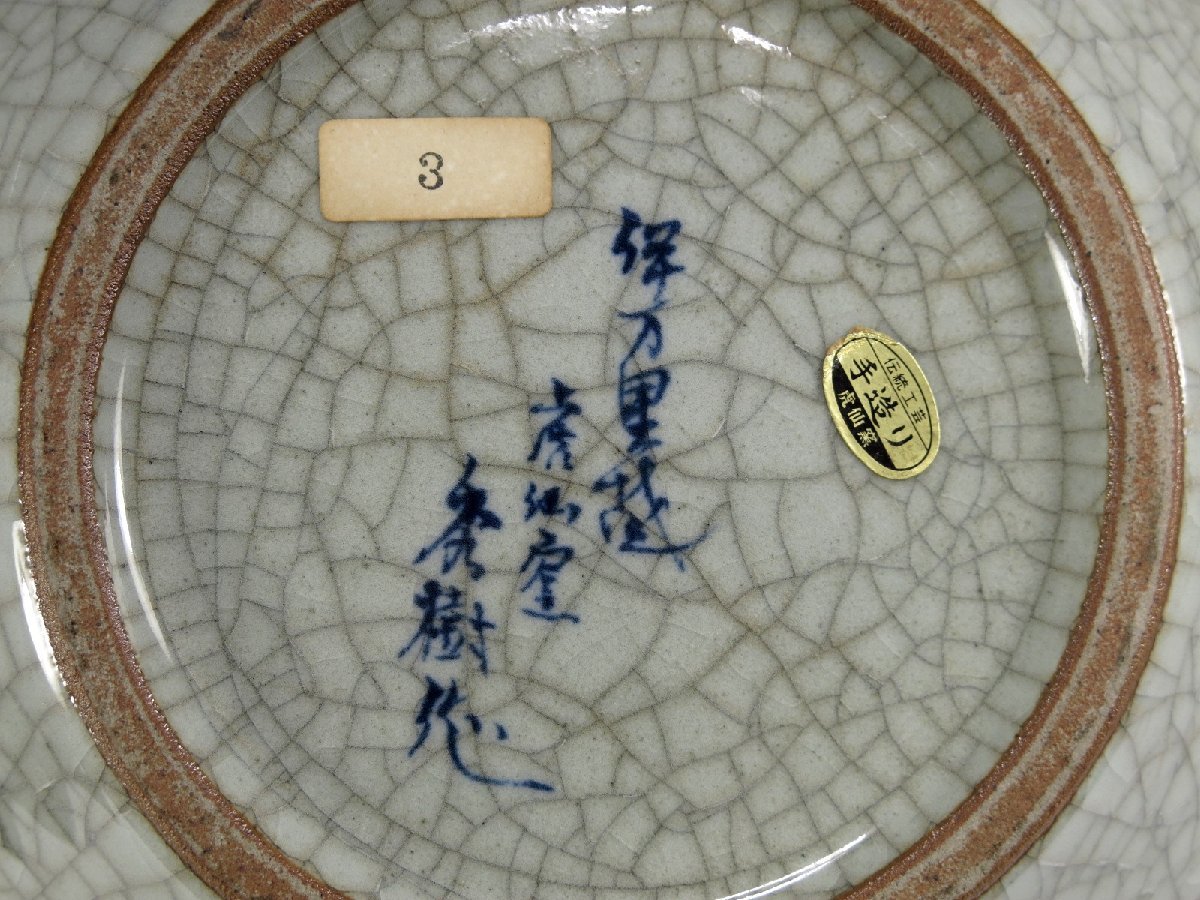 3
伝統工芸
手造り
虎仙窯
万里
虎仙窯
秀樹作